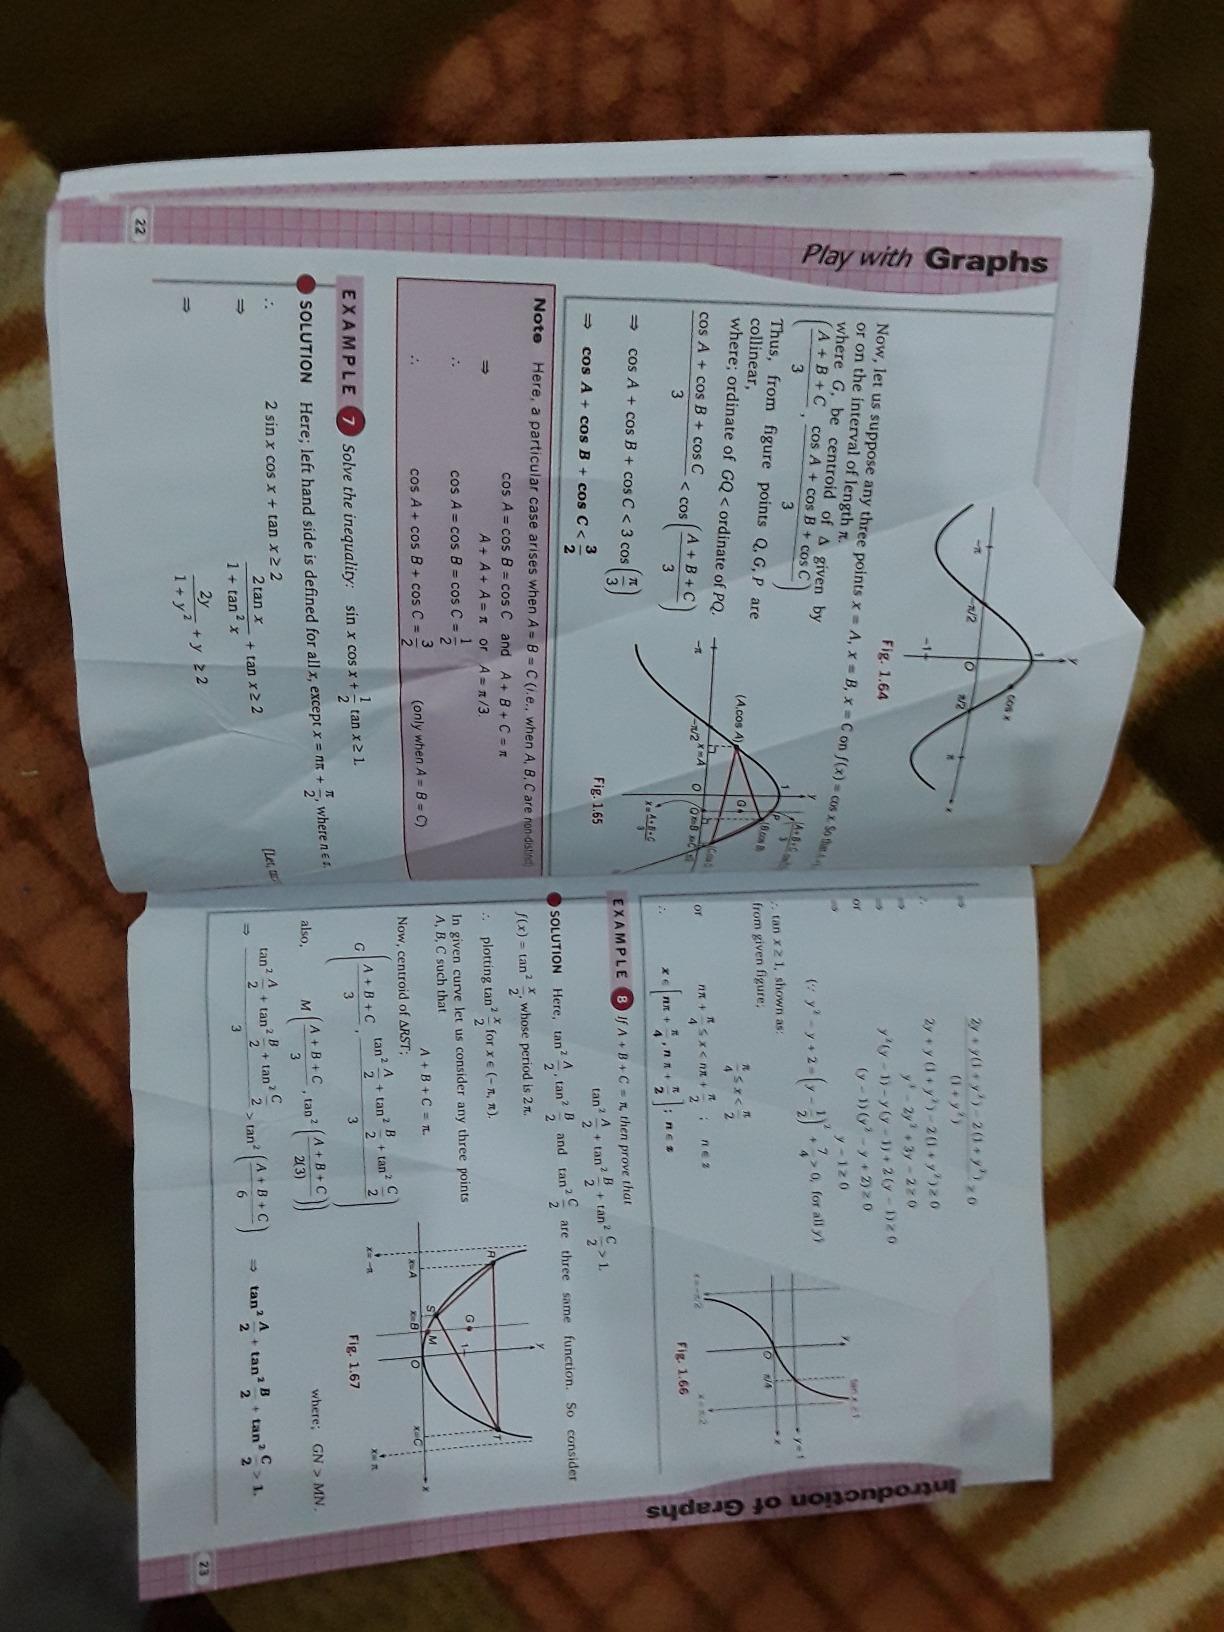 Play with Graphs
y
1
cos x
-π
-π/2
O
π/2
π
x
-1
Fig. 1.64
Now, let us suppose any three points x = A, x = B, x = C on f(x) = cos x. So that
or on the interval of length π.
where G, be centroid of Δ given by
(A + B + C / 3 , cos A + cos B + cos C / 3)
Thus, from figure points Q, G, P are
collinear,
where; ordinate of GQ < ordinate of PQ.
cos A + cos B + cos C / 3 < cos (A + B + C / 3)
⇒ cos A + cos B + cos C < 3 cos (π/3)
⇒ cos A + cos B + cos C < 3/2
y
1
P
(A, cos A)
G
-π
-π/2
x = A
O
x = A+B+C/3
Fig. 1.65
Note Here, a particular case arises when A = B = C (i.e., when A, B, C are non-distinct)
cos A = cos B = cos C and A + B + C = π
⇒ A + A + A = π or A = π/3.
∴ cos A = cos B = cos C = 1/2
∴ cos A + cos B + cos C = 3/2 (only when A = B = C)
EXAMPLE 7 Solve the inequality: sin x cos x + 1/2 tan x ≥ 1.
SOLUTION Here; left hand side is defined for all x, except x = nπ + π/2, where n ∈
∴ 2 sin x cos x + tan x ≥ 2
⇒ 2 tan x / 1 + tan² x + tan x ≥ 2
⇒ 2y / 1 + y² + y ≥ 2
[Let,
22
⇒ 2y + y(1 + y²) − 2(1 + y²) / (1 + y²) ≥ 0
∴ 2y + y (1 + y²) − 2(1 + y²) ≥ 0
⇒ y³ − 2y² + 3y − 2 ≥ 0
⇒ y²(y − 1) − y(y − 1) + 2(y − 1) ≥ 0
or (y − 1)(y² − y + 2) ≥ 0
⇒ y − 1 ≥ 0
(∵ y² − y + 2 = (y − 1/2)² + 7/4 > 0, for all y)
∴ tan x ≥ 1, shown as:
from given figure;
π/4 ≤ x < π/2
or nπ + π/4 ≤ x < nπ + π/2 ; n ∈ z
∴ x ∈ [nπ + π/4 , nπ + π/2] ; n ∈ z
y
tan x ≥ 1
y = 1
O
π/4
x
x = -π/2
x = π/2
Fig. 1.66
EXAMPLE 8 If A + B + C = π, then prove that
tan² A/2 + tan² B/2 + tan² C/2 > 1.
SOLUTION Here, tan² A/2, tan² B/2 and tan² C/2 are three same function. So consider
f(x) = tan² x/2, whose period is 2π.
∴ plotting tan² x/2 for x ∈ (−π, π).
In given curve let us consider any three points
A, B, C such that
A + B + C = π.
Now, centroid of ΔRST;
G (A + B + C / 3 , tan² A/2 + tan² B/2 + tan² C/2 / 3)
also, M (A + B + C / 3 , tan² (A + B + C / 2(3))) where; GN > MN.
⇒ tan² A/2 + tan² B/2 + tan² C/2 / 3 > tan² (A + B + C / 6) ⇒ tan² A/2 + tan² B/2 + tan² C/2 > 1.
y
R
T
G
1
S
M
x=A
x=B
O
x=C
x
x=-π
x=π
Fig. 1.67
Introduction of Graphs
23